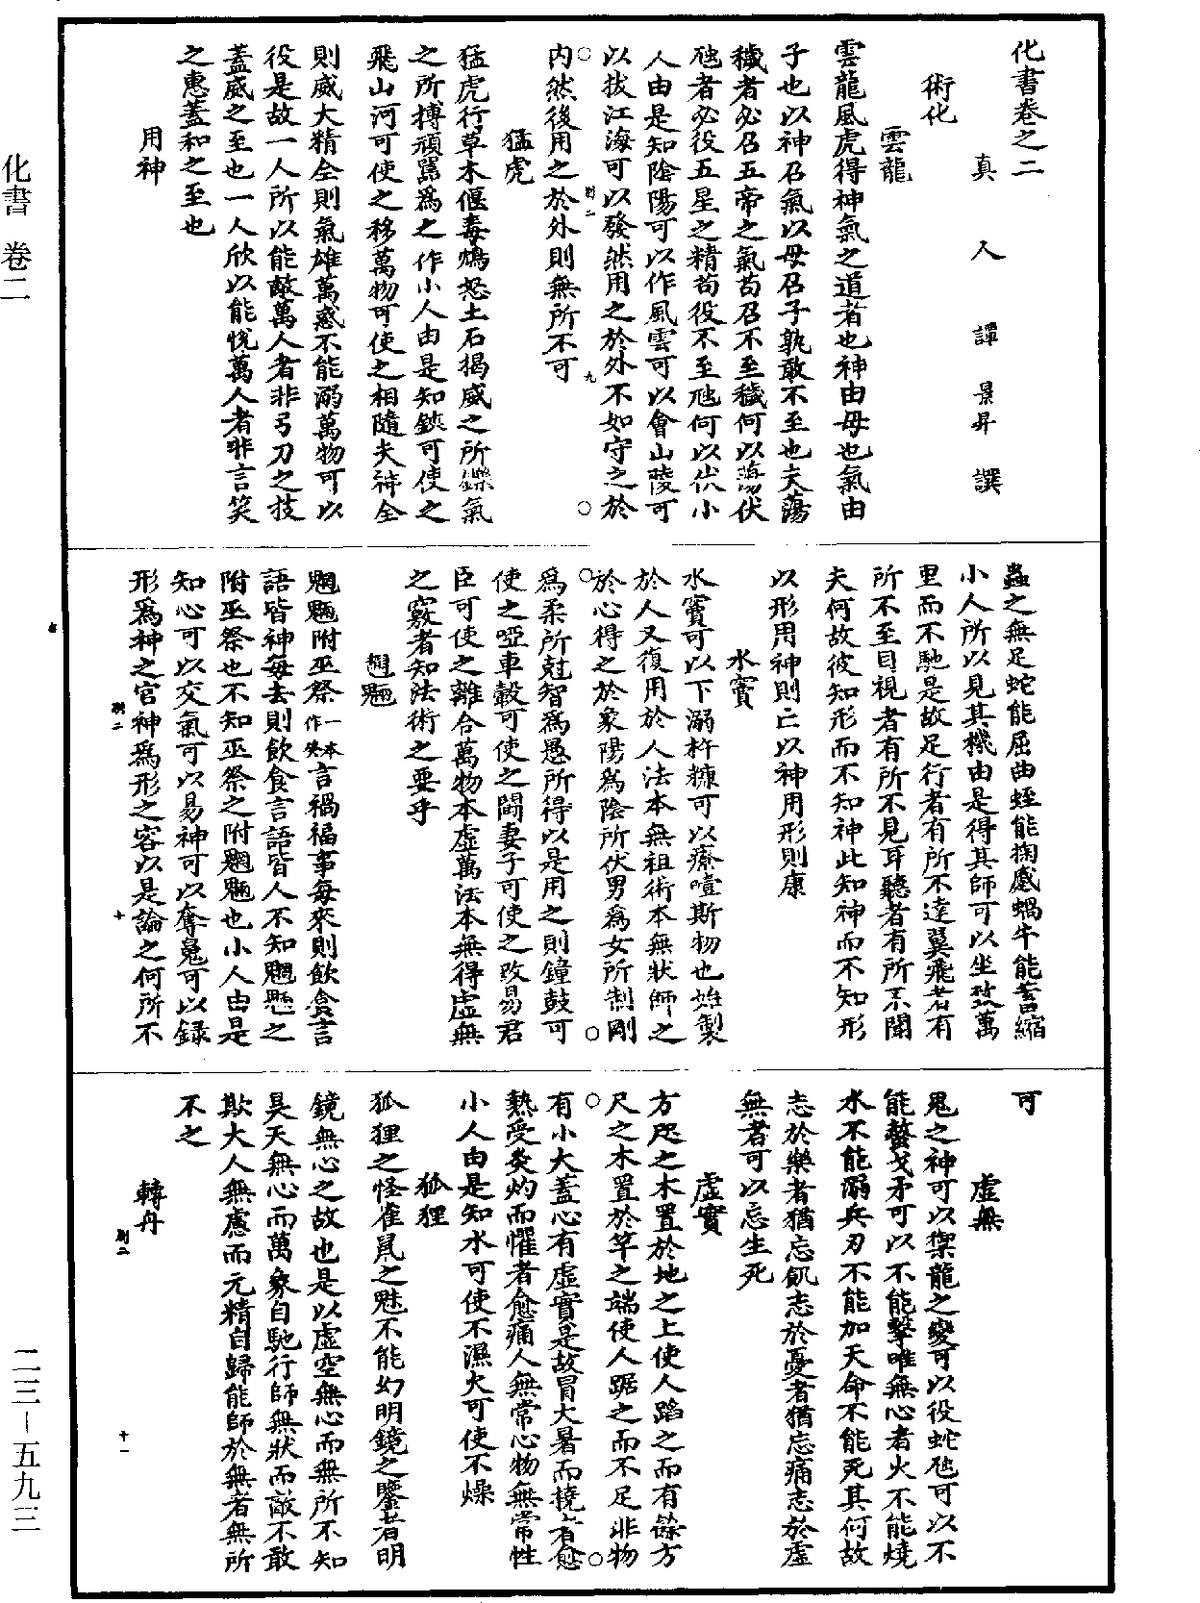 化書卷之二
真人譚景昇譔
術化
雲龍
雲龍風虎得神氣之道者也神由母也氣由
子也以神召氣以母召子孰敢不至也夫蕩
穢者必召五帝之氣苟召不至穢何以蕩伏
虺者必役五星之精苟役不至虺何以伏小
人由是知陰陽可以作風雲可以會山陵可
以拔江海可以發然用之於外不如守之於
內然後用之於外則無所不可
猛虎
猛虎行草木偃毒鴆怒土石揭威之所鑠氣
之所搏頑嚚為之作小人由是知鋏可使之
飛山河可使之移萬物可使之相隨夫神全
則威大精全則氣雄萬惑不能溺萬物可以
役是故一人所以能敵萬人者非弓刀之技
蓋威之至也一人所以能悅萬人者非言笑
之惠蓋和之至也
用神
蟲之無足蛇能屈曲蛭能掬蹙蝸牛能蓄縮
小人所以見其機由是得其師可以坐致萬
里而不馳是故足行者有所不達翼飛者有
所不至目視者有所不見耳聽者有所不聞
夫何故彼知形而不知神此知神而不知形
以形用神則亡以神用形則康
水竇
水竇可以下溺杵糠可以療噎斯物也始製
於人又復用於人法本無祖術本無狀師之
於心得之於象陽為陰所伏男為女所制剛
為柔所尅智為愚所得以是用之則鐘鼓可
使之啞車轂可使之鬭妻子可使之改易君
臣可使之離合萬物本虛萬法本無得虛無
之竅者知法術之要乎
魍魎
魍魎附巫祭一本作癸言禍福事每來則飲食言
語皆神每去則飲食言語皆人不知魍魎之
附巫祭也不知巫祭之附魍魎也小人由是
知心可以交氣可以易神可以奪魂可以錄
形為神之官神為形之容以是論之何所不
可
虛無
鬼之神可以禦龍之變可以役蛇虺可以不
能螫戈矛可以不能擊唯無心者火不能燒
水不能溺兵刃不能加天命不能死其何故
志於樂者猶忘飢志於憂者猶忘痛志於虛
無者可以忘生死
虛實
方咫之木置於地之上使人蹈之而有餘方
尺之木置於竿之端使人踞之而不足非物
有小大蓋心有虛實是故冒大暑而撓者愈
熱受灸灼而懼者愈痛人無常心物無常性
小人由是知水可使不濕火可使不燥
狐狸
狐狸之怪雀鼠之魅不能幻明鏡之鑒者明
鏡無心之故也是以虛空無心而無所不知
昊天無心而萬象自馳行師無狀而敵不敢
欺大人無慮而元精自歸能師於無者無所
不之
轉舟
化書 卷二
二三－五九三